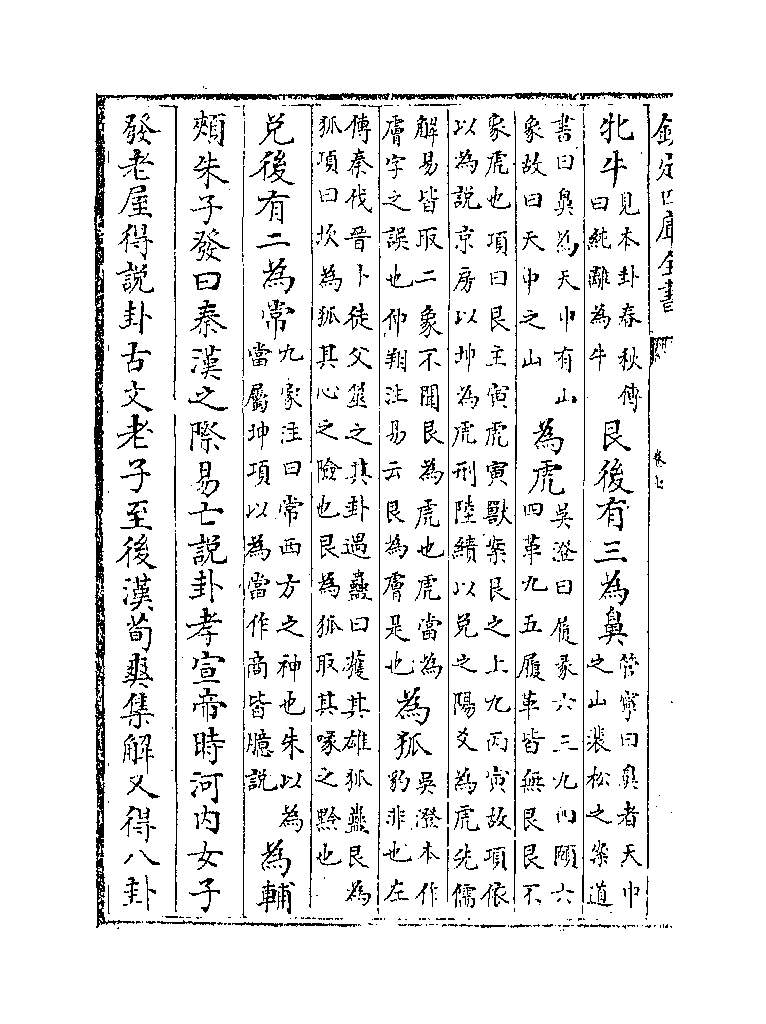 欽定四庫全書 卷七
牝牛見本卦春秋傳曰純離為牛艮後有三為鼻管寧曰鼻者天中之山裴松之案道
書曰鼻為天中有山象故曰天中之山為虎吳澄曰履彖六三九四頤六四革九五履革皆無艮艮不
象虎也項曰艮主寅虎寅獸案艮之上九丙寅故項依以為説京房以坤為虎刑陸績以兌之陽爻為虎先儒
解易皆取二象不聞艮為虎也虎當為膚字之誤也仲翔注易云艮為膚是也為狐吳澄本作豹非也左
傳秦伐晉卜徒父筮之其卦遇蠱曰獲其雄狐蠱艮為狐項曰坎為狐其心之險也艮為狐取其喙之黔也
兌後有二為常九家注曰常西方之神也朱以為當屬坤項以為當作商皆臆説為輔
頰朱子發曰秦漢之際易亡説卦孝宣帝時河内女子
發老屋得説卦古文老子至後漢荀爽集解又得八卦